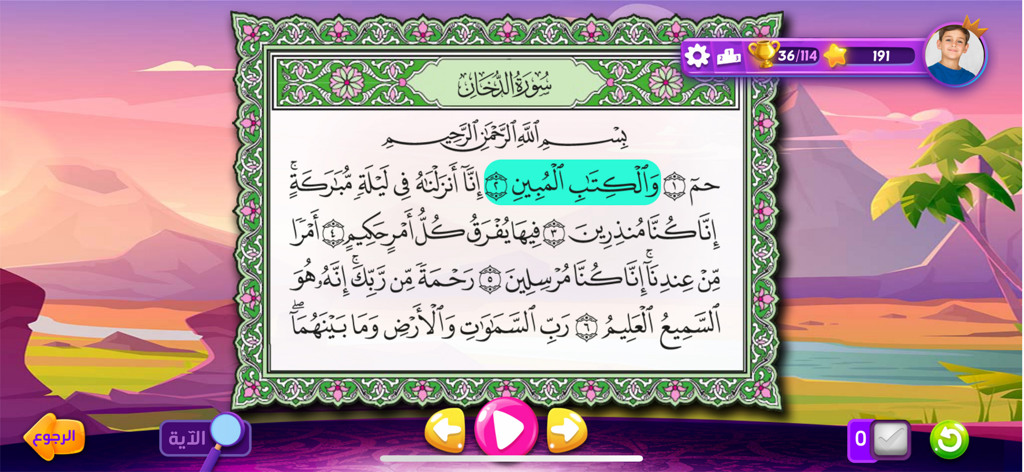 36/114
191
سُورَةُ الدُّخَانِ
بِسْمِ ٱللَّهِ ٱلرَّحْمَٰنِ ٱلرَّحِيمِ
حمٓ ١ وَٱلْكِتَٰبِ ٱلْمُبِينِ ٢ إِنَّآ أَنزَلْنَٰهُ فِى لَيْلَةٍ مُّبَٰرَكَةٍۚ
إِنَّا كُنَّا مُنذِرِينَ ٣ فِيهَا يُفْرَقُ كُلُّ أَمْرٍ حَكِيمٍ ٤ أَمْرًا
مِّنْ عِندِنَآۚ إِنَّا كُنَّا مُرْسِلِينَ ٥ رَحْمَةً مِّن رَّبِّكَۚ إِنَّهُۥ هُوَ
ٱلسَّمِيعُ ٱلْعَلِيمُ ٦ رَبِّ ٱلسَّمَٰوَٰتِ وَٱلْأَرْضِ وَمَا بَيْنَهُمَآۖ
الرجوع
الآية
0